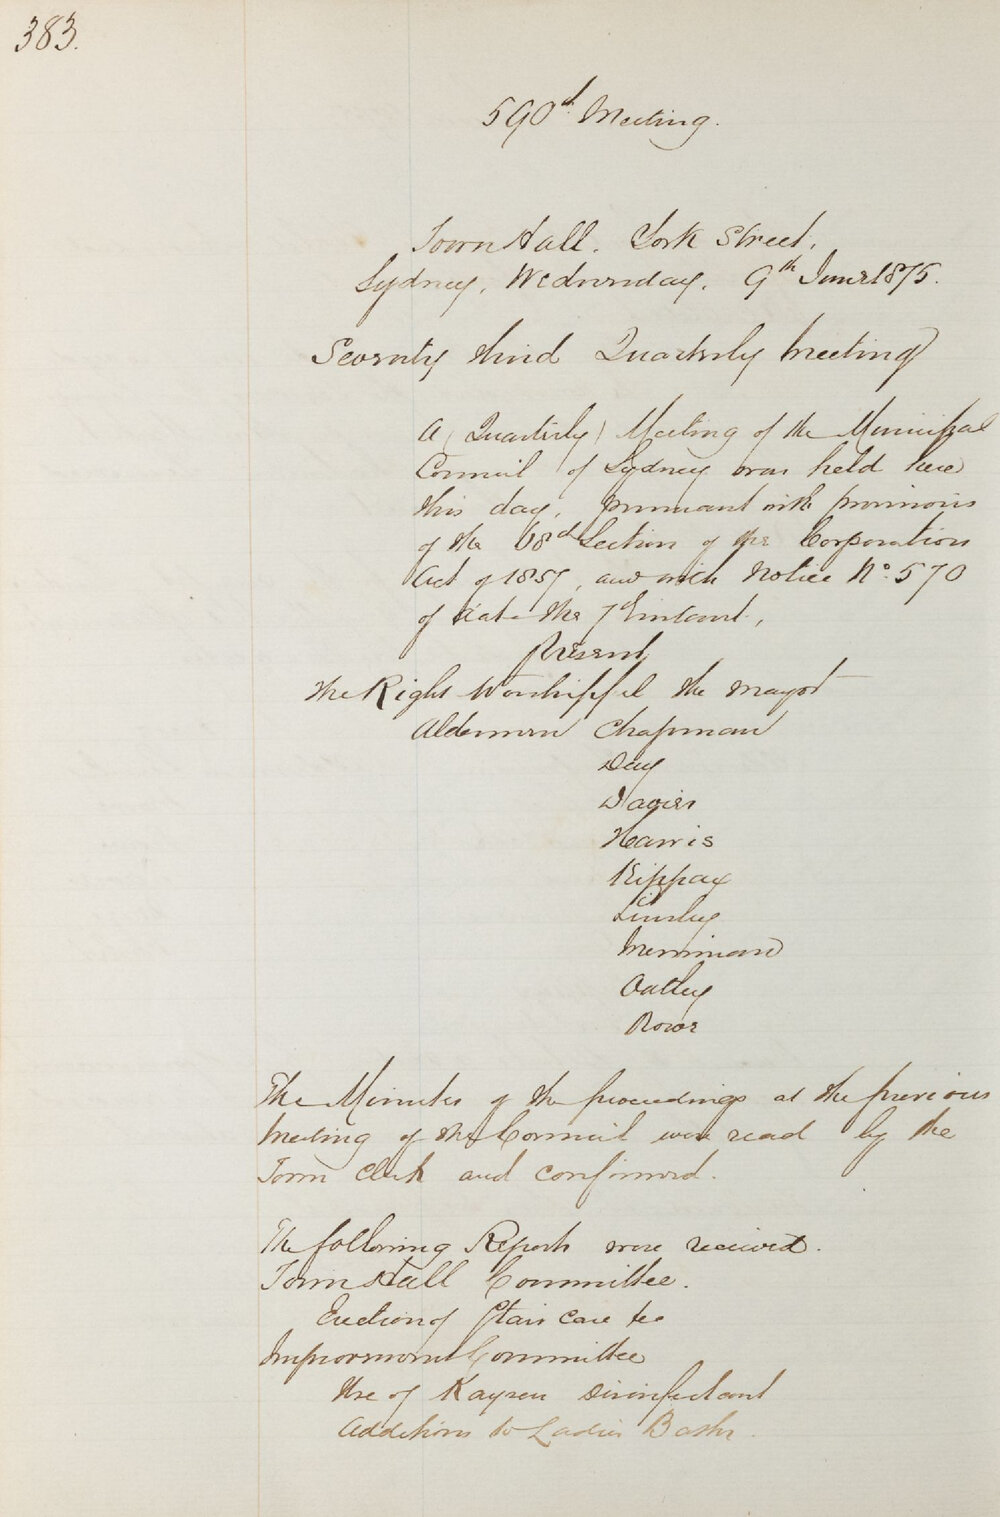 383.
590th Meeting.
Town Hall. York Street,
Sydney, Wednesday, 9th June 1875.
Seventy third Quarterly Meeting
A (Quarterly) Meeting of the Municipal
Council of Sydney was held here
this day, pursuant with provisions
of the 68d Section of the Corporation
Act of 1857, and with Notice No. 570
of date the 7th instant,
Present
The Right Worshipful the Mayor
Aldermen Chapman
Day
Davies
Harris
Kippax
Linsley
Merriman
Oatley
Rowe
The Minutes of the proceedings at the previous
Meeting of the Council were read by the
Town Clerk and confirmed.
The following Reports were received.
Town Hall Committee.
Erection of Stair Case &c
Improvement Committee
Use of Disinfectant
Additions to Ladies Baths.